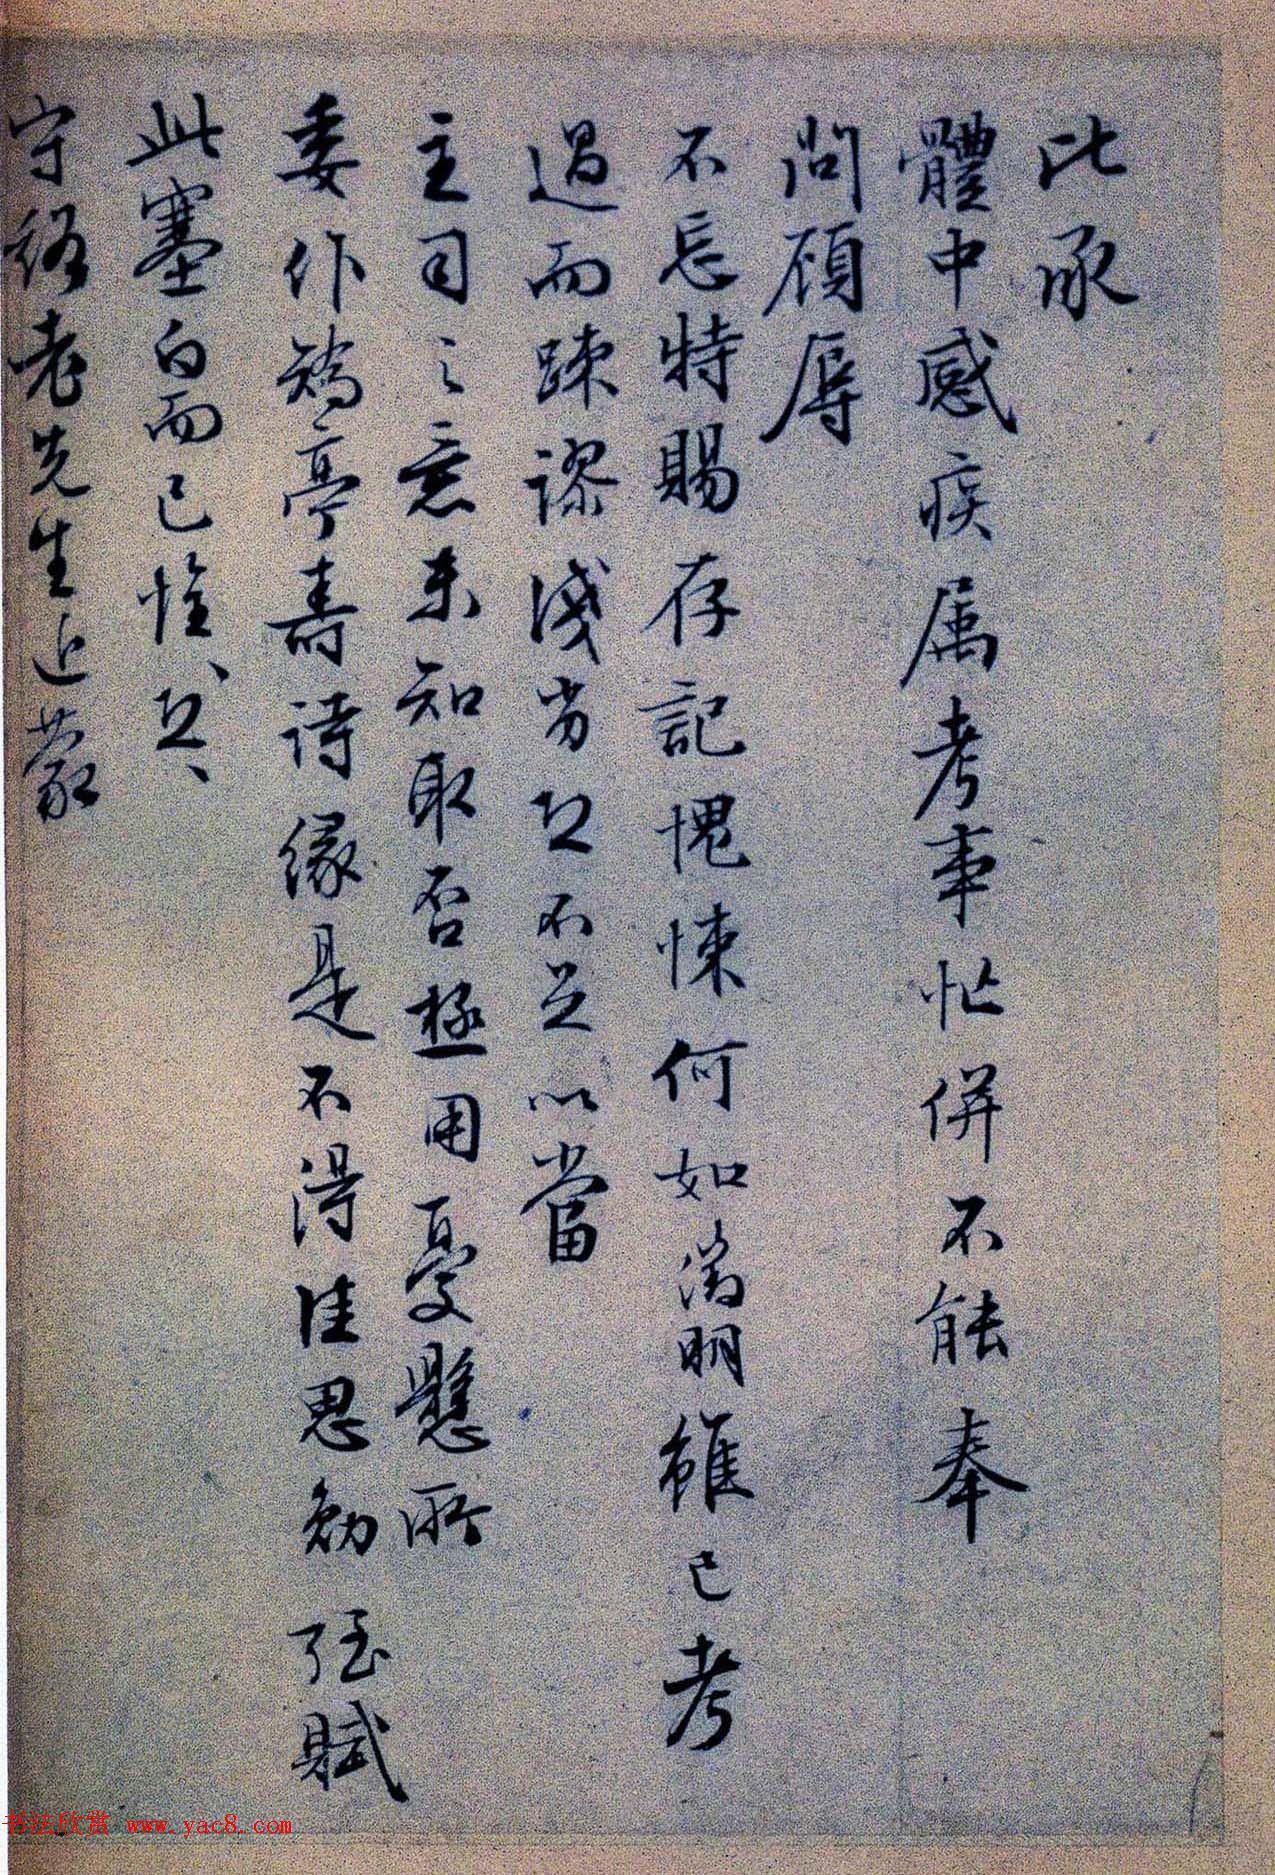 比承
體中感疾属考事忙併不能奉
問顧辱
不忘特賜存記愧悚何如滿明雖已考
過而踈謬淺劣恐不足以當
主司之意未知取否極用憂懸所
委作稿亭壽詩緣是不得佳思勉強賦
此塞白而已惟恐
守谿老先生近蒙
书法欣赏 www.yac8.com